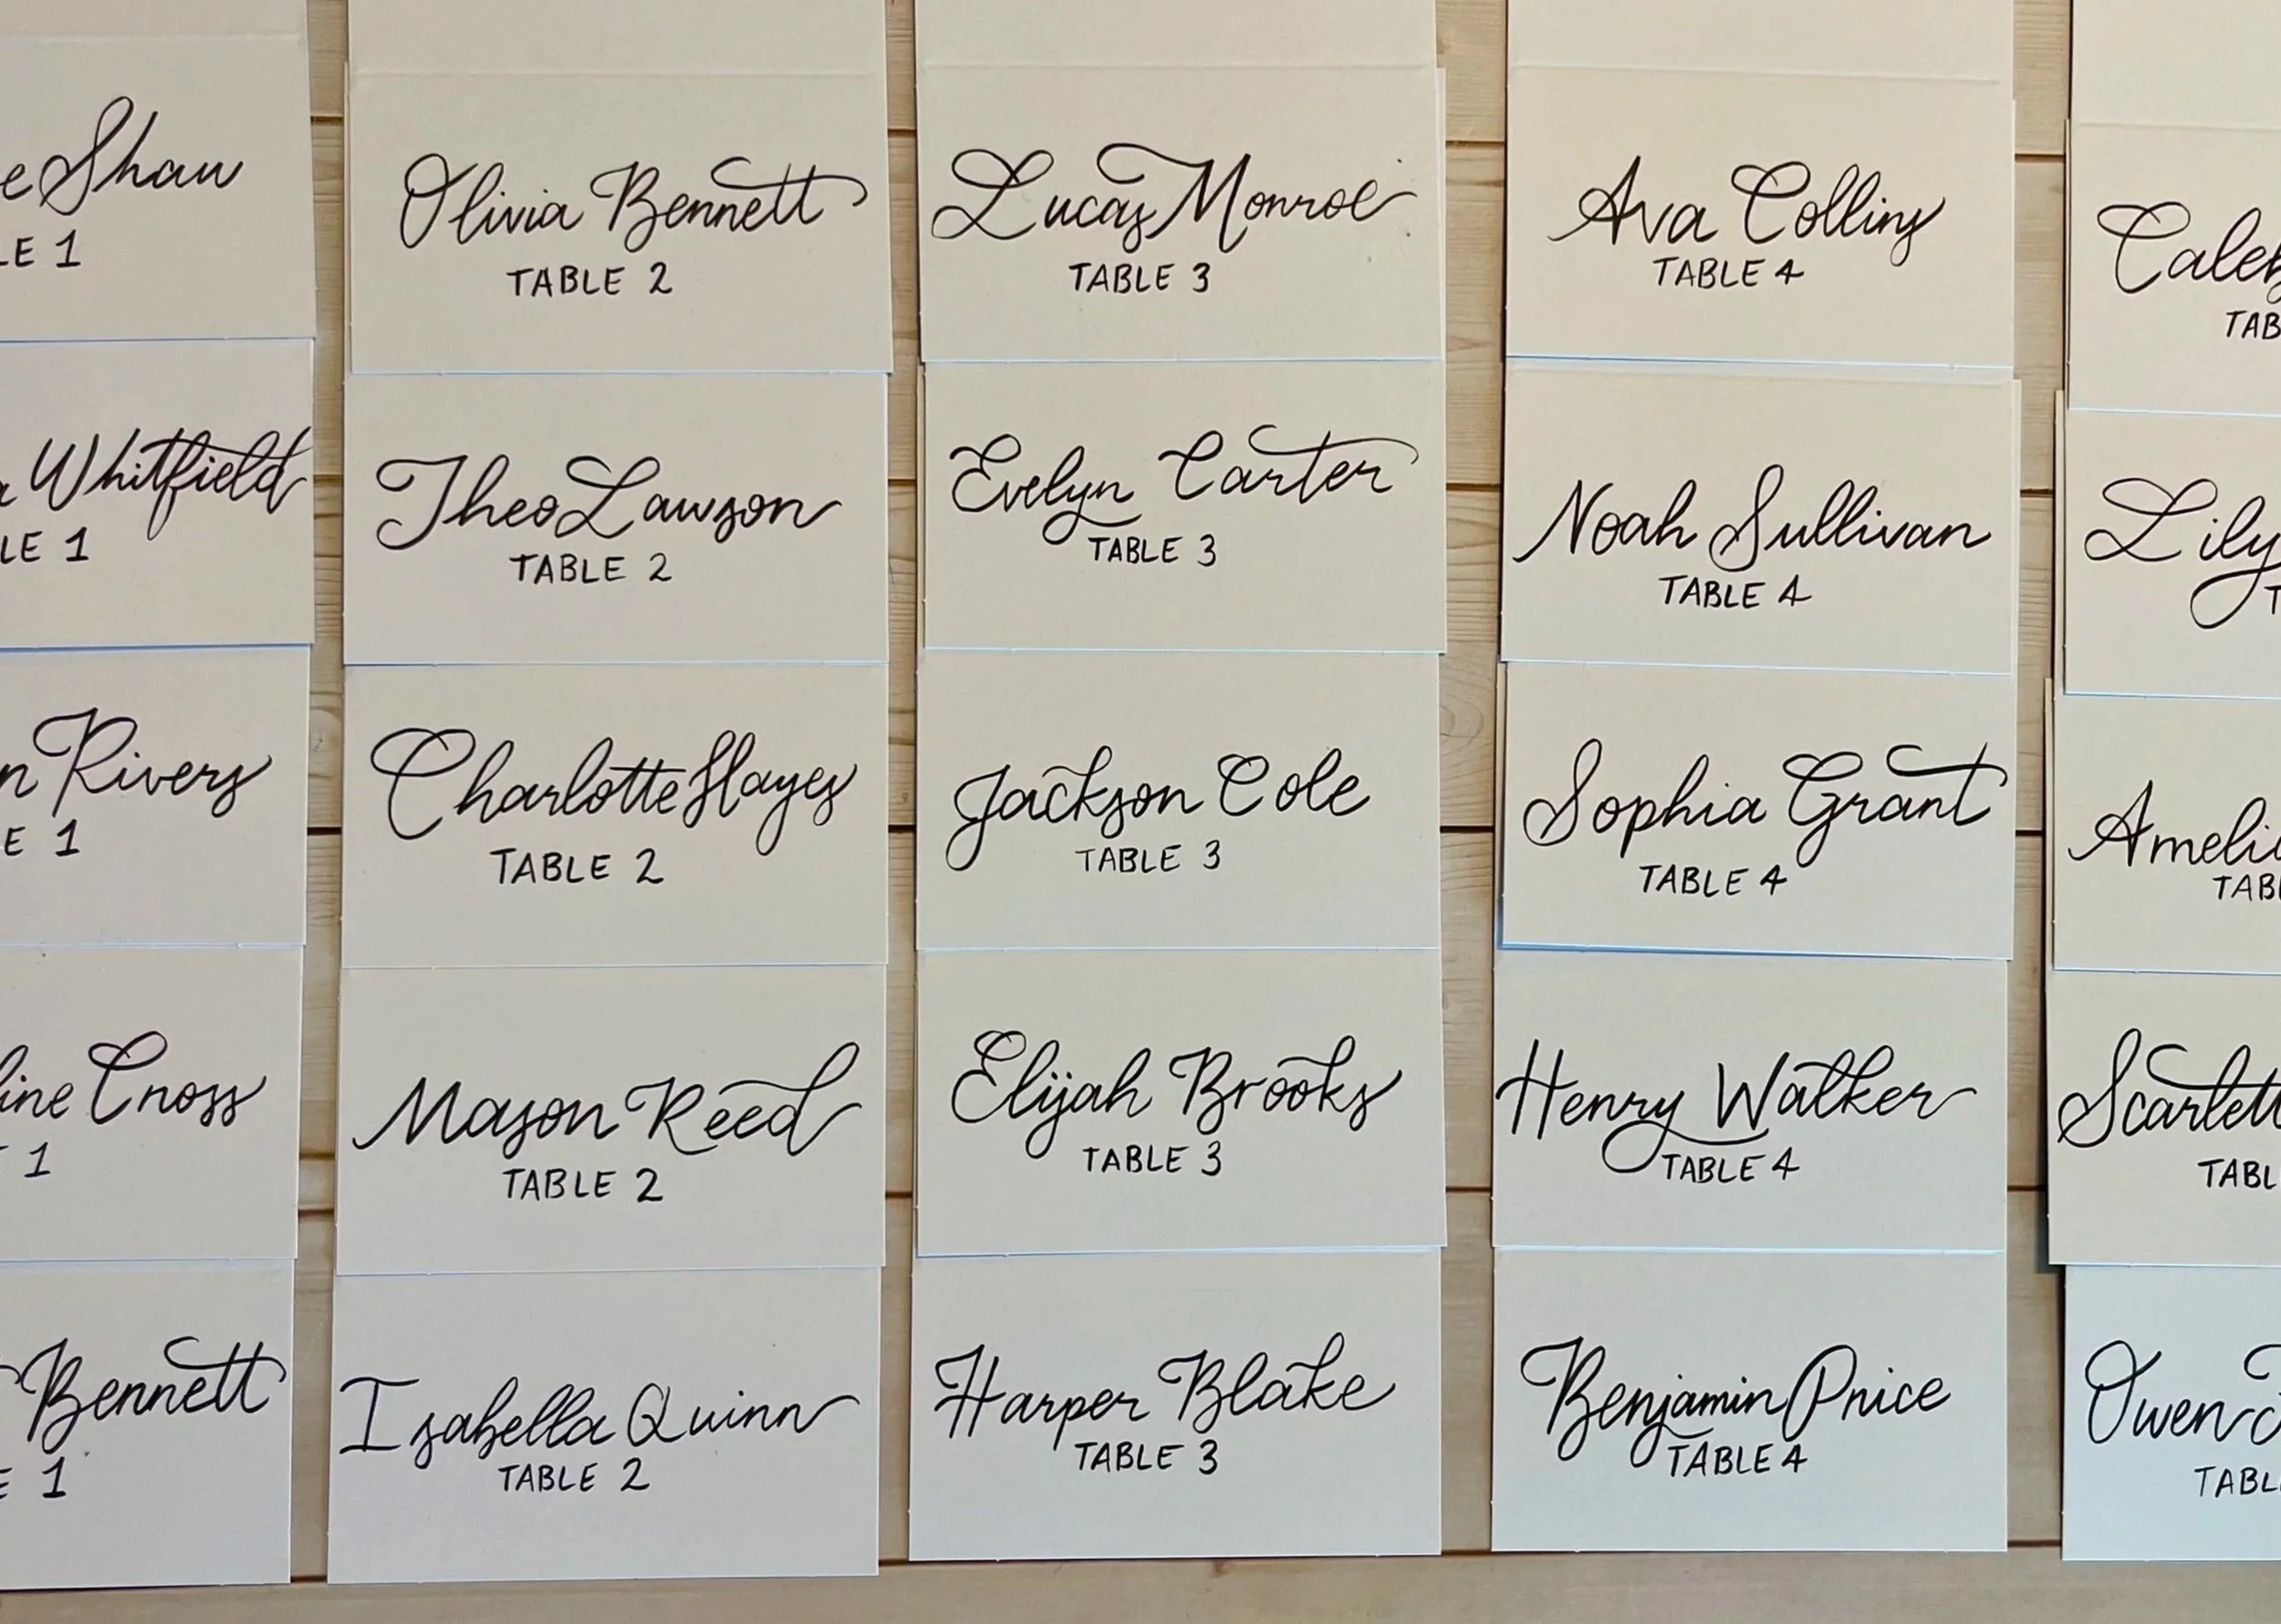 Shaw
1
Whitfield
1
Rivers
1
Cross
1
Bennett
1
Olivia Bennett
TABLE 2
Theo Lawson
TABLE 2
Charlotte Hayes
TABLE 2
Mason Reed
TABLE 2
Isabella Quinn
TABLE 2
Lucas Monroe
TABLE 3
Evelyn Carter
TABLE 3
Jackson Cole
TABLE 3
Elijah Brooks
TABLE 3
Harper Blake
TABLE 3
Ava Collins
TABLE 4
Noah Sullivan
TABLE 4
Sophia Grant
TABLE 4
Henry Walker
TABLE 4
Benjamin Price
TABLE 4
Caleb
Lily
Scarlett
Owen